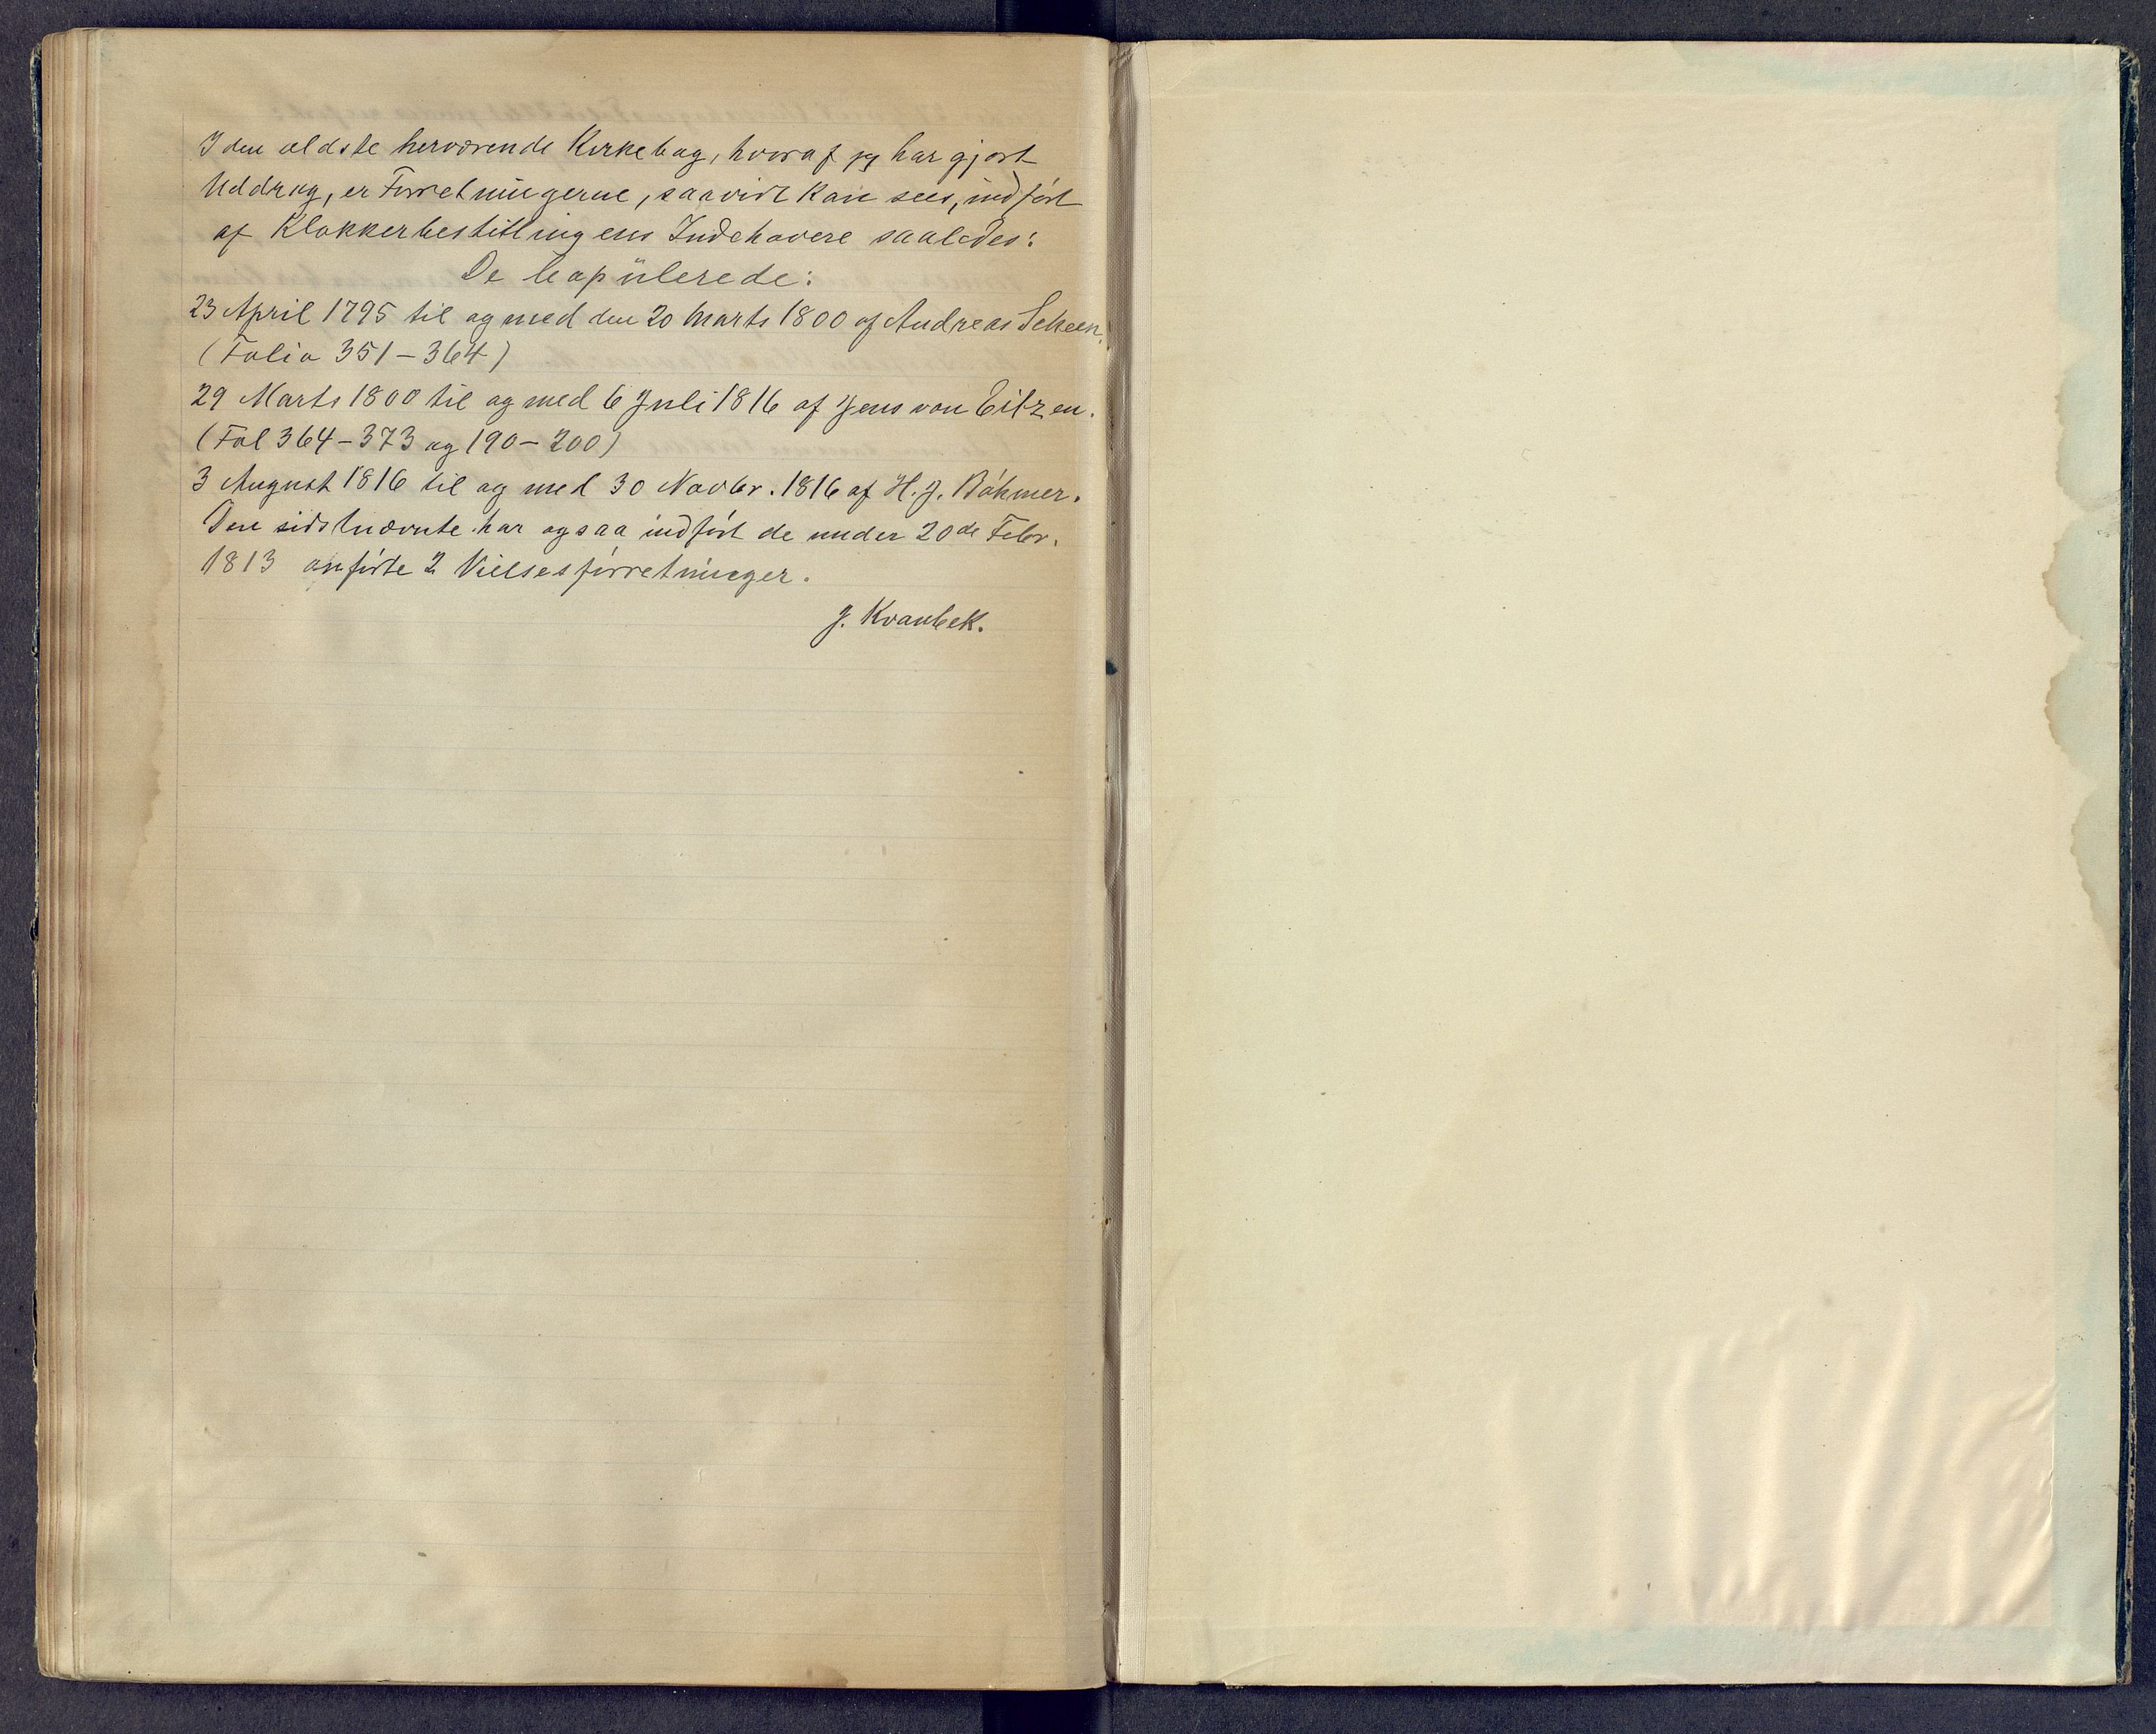 I den ældste herværende Kirkebog, hvoraf jeg har gjort
Uddrag, er Forretningerne, saavidt kan sees, indført
af Klokkerbestillingens Indehavere saaledes:
De copulerede:
23 April 1795 til og med den 20 Marts 1800 af Andreas Scheen.
(Folio 351-364)
29 Marts 1800 til og med 6 Juli 1816 af Jens von Eitzen.
(Fol 364-373 og 190-200)
3 August 1816 til og med 30 Novbr. 1816 af H. J. Bøhmer.
Den sidstnævnte har ogsaa indført de under 20de Febr.
1813 anførte 2 Vielsesforretninger.
J. Kvanbek.